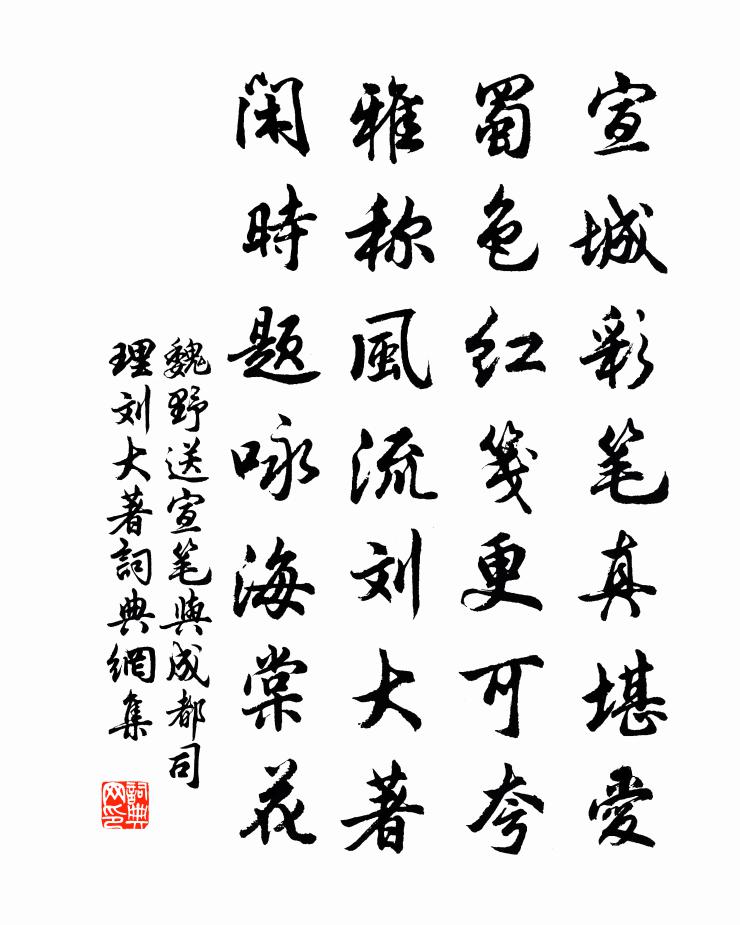 宣城彩笔真堪愛
蜀色红箋更可夸
雅称風流刘大著
闲時题咏海棠花
魏野送宣笔與成都司
理刘大著詞典網集
詞典网印